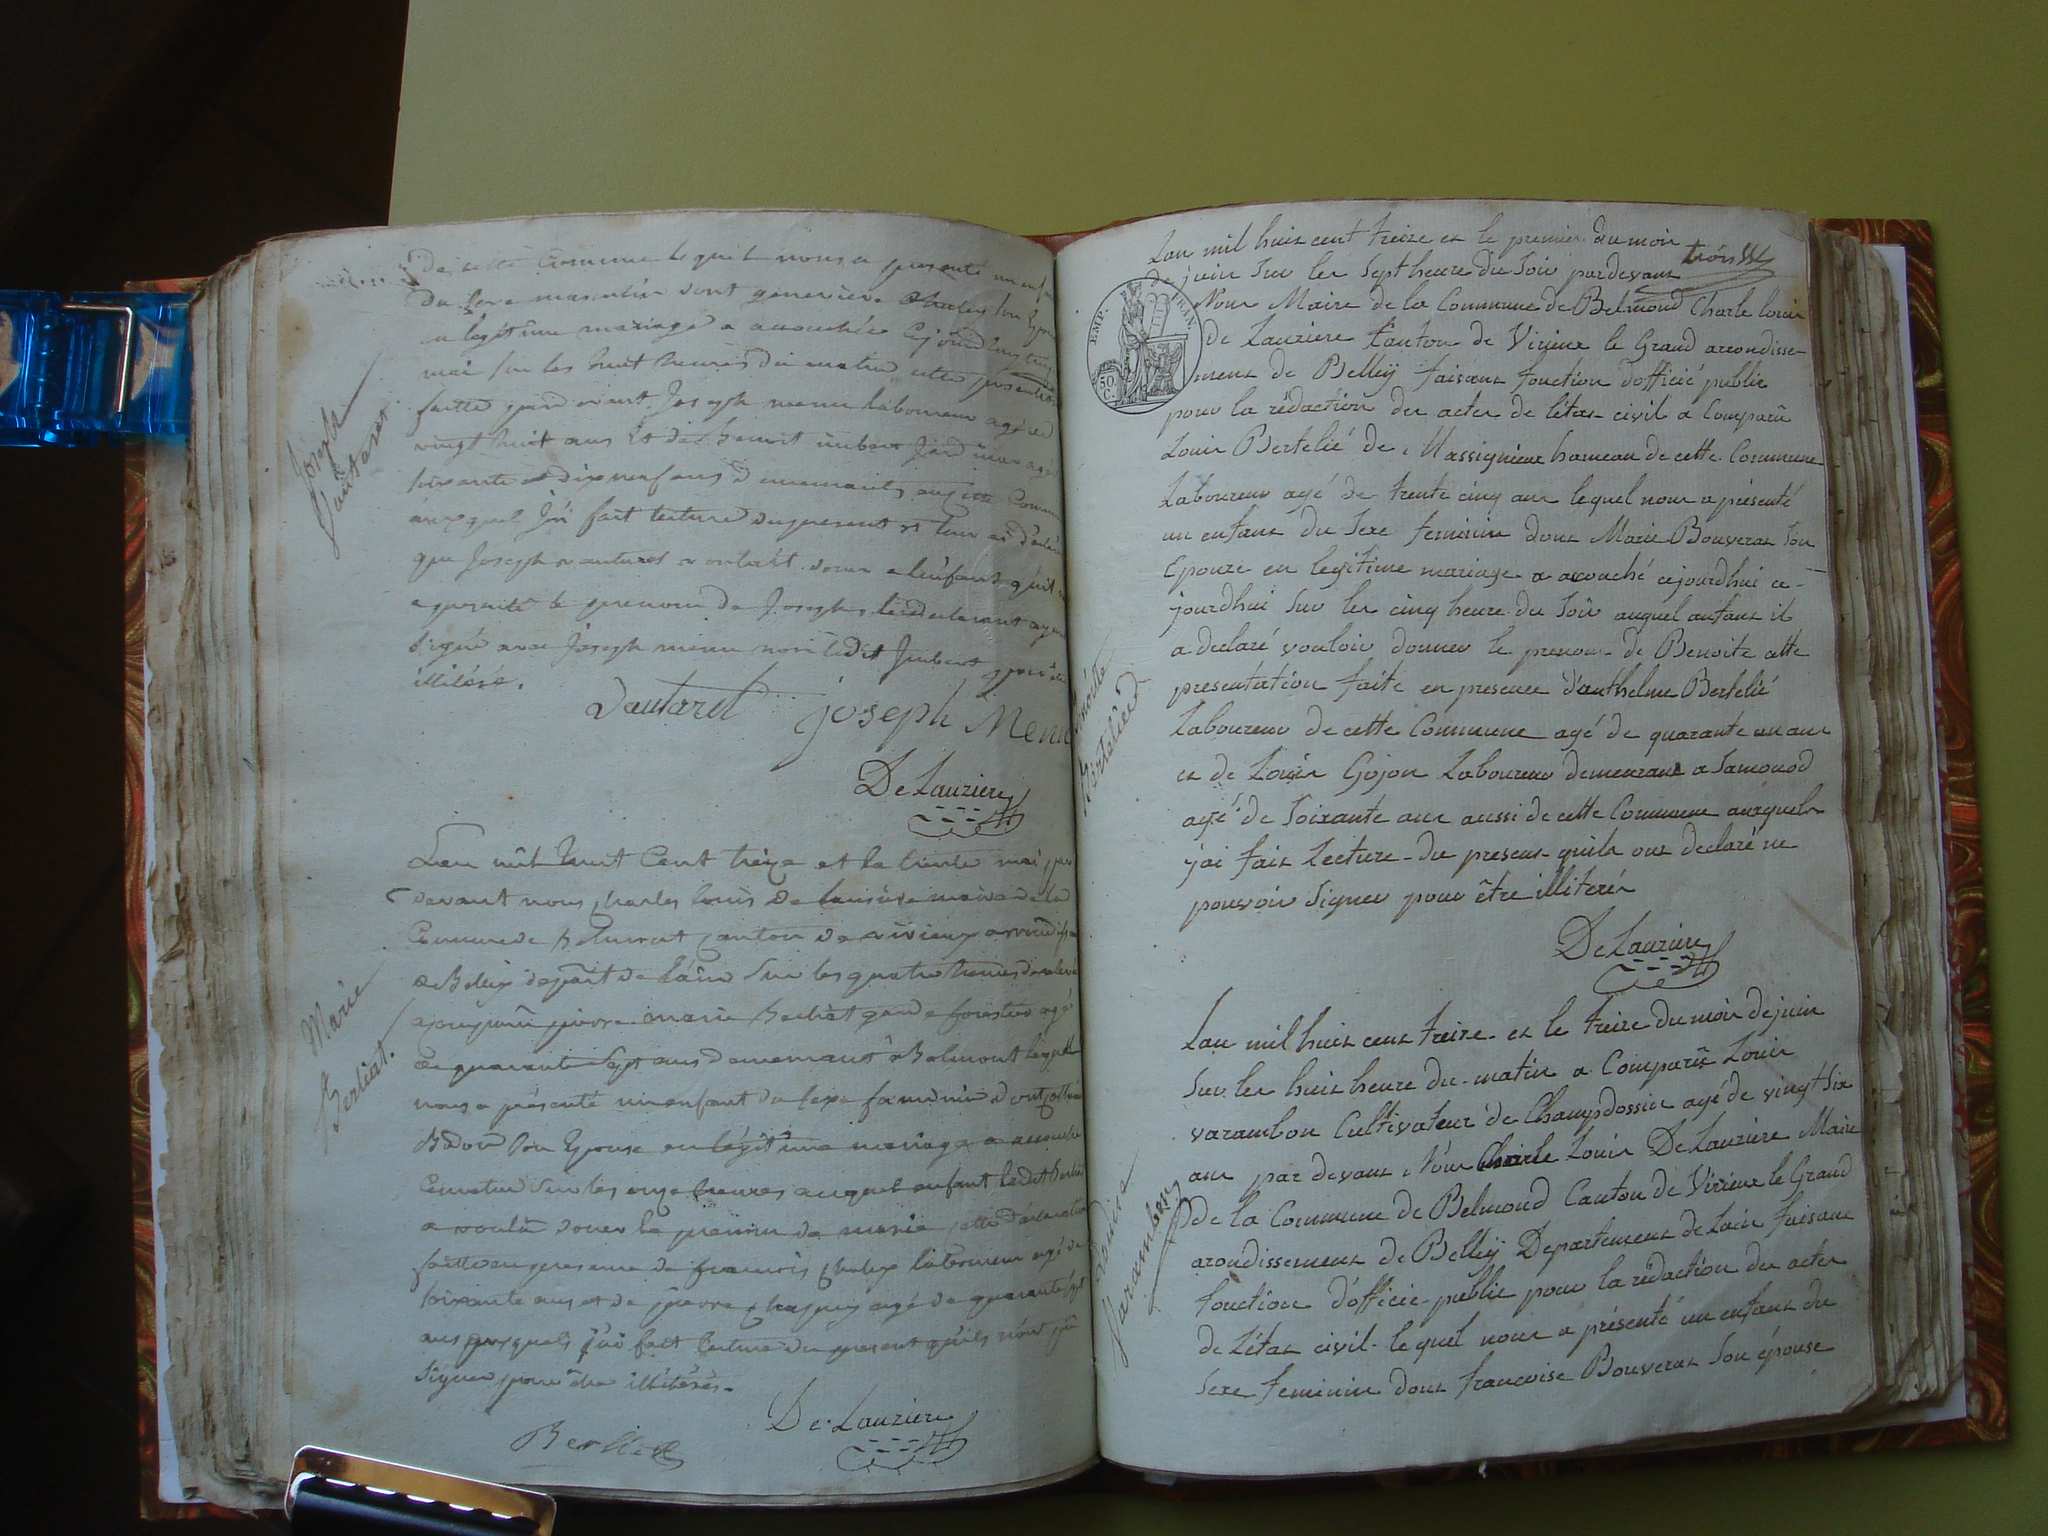 de cette Commune lequel nous a presenté un enfant
du sexe masculin dont genevieve Charley son Epouse
en legitime mariage a accouchée Cejourdhuy trente
mai sur les huit heures du matin cette presentation
faitte pard evant Joseph menu laboureur agé de
vingt huit ans et de benoit imbert Jardinier agé
soixante et dix neuf ans demeurants en cette Commune
auxquel J'ai fait lecture du present et leur ai déclaré
que Joseph vautaret a voulut doner a lenfant qu'il
a presenté le prenom de Joseph ledeclarant ayant
signé avec Joseph menu non ledit Imbert pour être
illitéré.
Joseph
Vautaret
Dautaret joseph Menu
De Lauziere
Lan mil huit Cent treize et le trente mai par
devant nous charles louis de lauziere maire de la
Commune de Belmont Canton de virieux arrondissement
de Belley depart de l'ain sur les quatre heures du soir
a comparu pierre marie Berliat garde forestier agé
de quarante sept ans demeurant a Belmont lequel
nous a présenté un enfant du sexe feminin dont
son Epouse en légitime mariage a accouché
Cematin sur les onze heures auquel enfant ledit Berliat
a voulu doner le prenom de marie cette déclaration
faitte en presence de francois laboureur agé de
soixante ans et de pierre agé de quarante sept
ans auxquels j'ai fait lecture du present qu'ils n'ont pu
signer pour être illitérés.
Marie
Berliat.
Berliat De Lauziere
Lan mil huit cent treize et le premier du moir
de juin sur les sept heure du soir pardevant
Nous Maire de la Commune de Belmond Charle louis
de Lauziere Canton de Virieux le Grand arrondisse-
ment de Belleÿ faisant fonction d'officié public
pour la rédaction des actes de létat civil a Comparû
Louis Bertelié de Massignieux hameau de cette Commune
Laboureur agé de trente cinq ans lequel nous a présenté
un enfant du Sexe feminin dont Marie Bouverat Son
Epouze en legitime mariage a acouché cejourdhui ce-
jourdhui Sur les cinq heure du Soir auquel enfant il
a declaré vouloir donner le prenom de Benoite cette
presentation faite en presence d'anthelme Bertelié
Laboureur de cette Commune agé de quarante un ans
et de Louis Gojon Laboureur demeurant a Samonod
agé de Soixante ans aussi de cette Commune auxquels
j'ai fait Lecture du present quils ont declaré ne
pouvoir Signer pour être illiterés
EMP. FRAN.
50 C.
Benoite
Bertelié
De Lauziere
Lan mil huit cent treize et le treize du mois de juin
Sur les huit heure du matin a Comparû Louis
varambon Cultivateur de Champdossin agé de vingt Six
ans par devant Nous Charle Louis De Lauziere Maire
de la Commune de Belmond Canton de Virieux le Grand
arondissement de Belleÿ Departement de Lain faisant
fonction d'officié public pour la rédaction des actes
de Létat civil lequel nous a présenté un enfant du
Sexe feminin dont francoise Bouverat Son épouse
Varambon